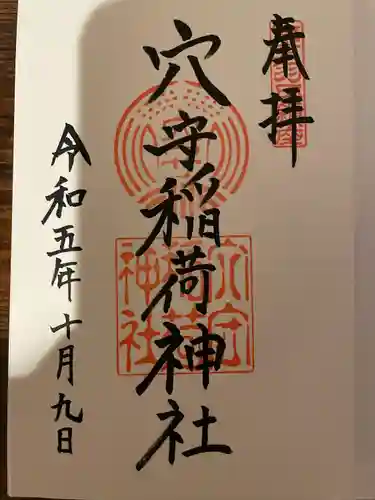 奉拝
穴守稲荷神社
令和五年十月九日
穴守
稲荷
神社